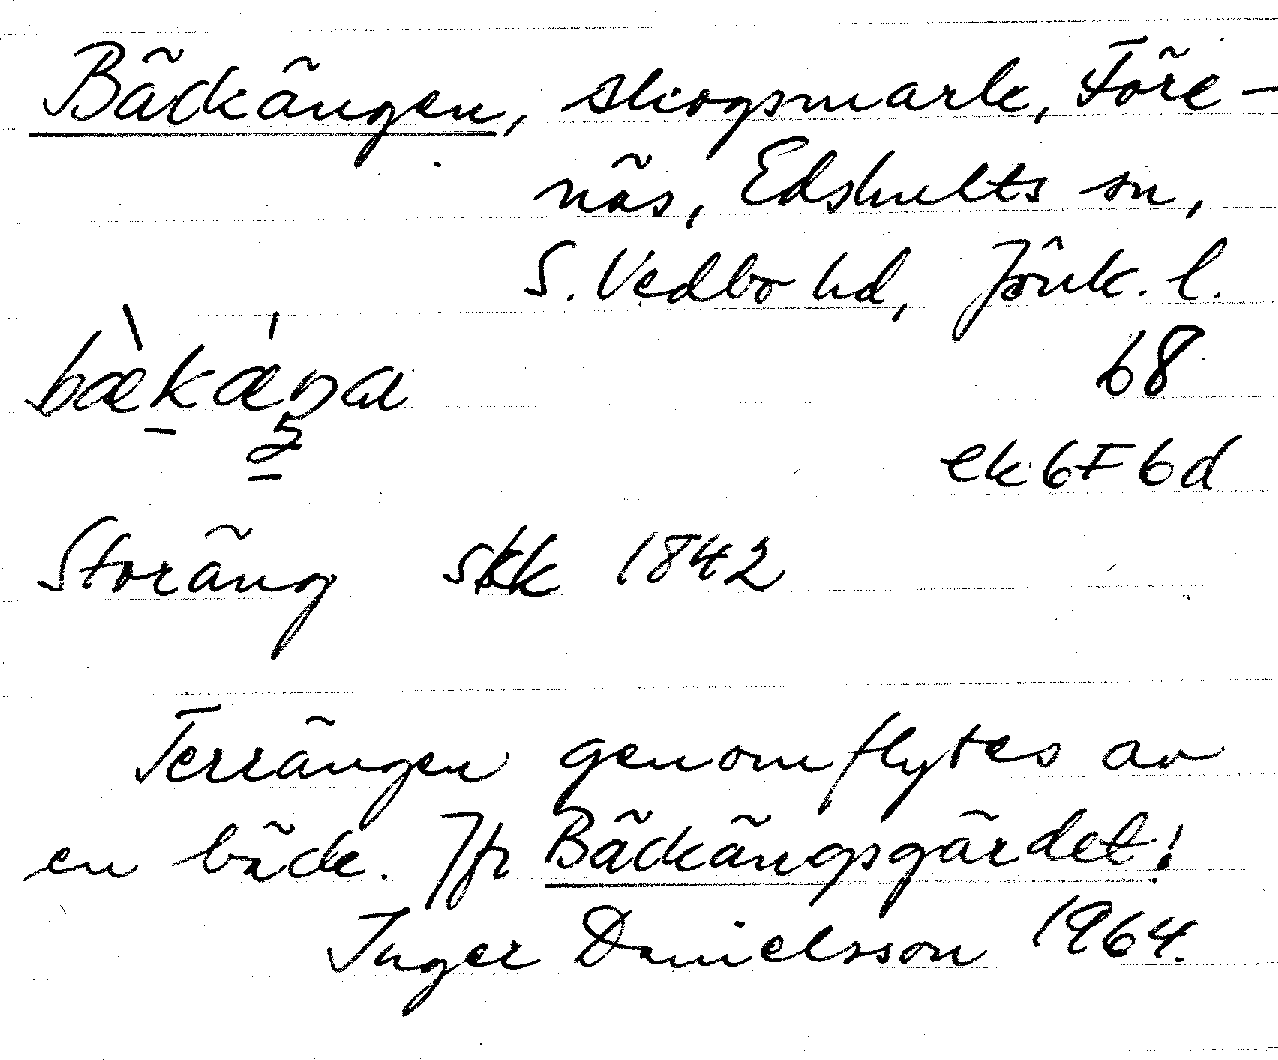 Bäckängen, skogsmark, Före-
näs, Edshults sn,
S. Vedbo hd, Jönk. l.
bæ̀kǽŋa
68
5
ek 6F6d
Storäng skk 1842
Terrängen genomflytes av
en bäck. Jfr Bäckängsgärdet!
Inger Danielsson 1964.